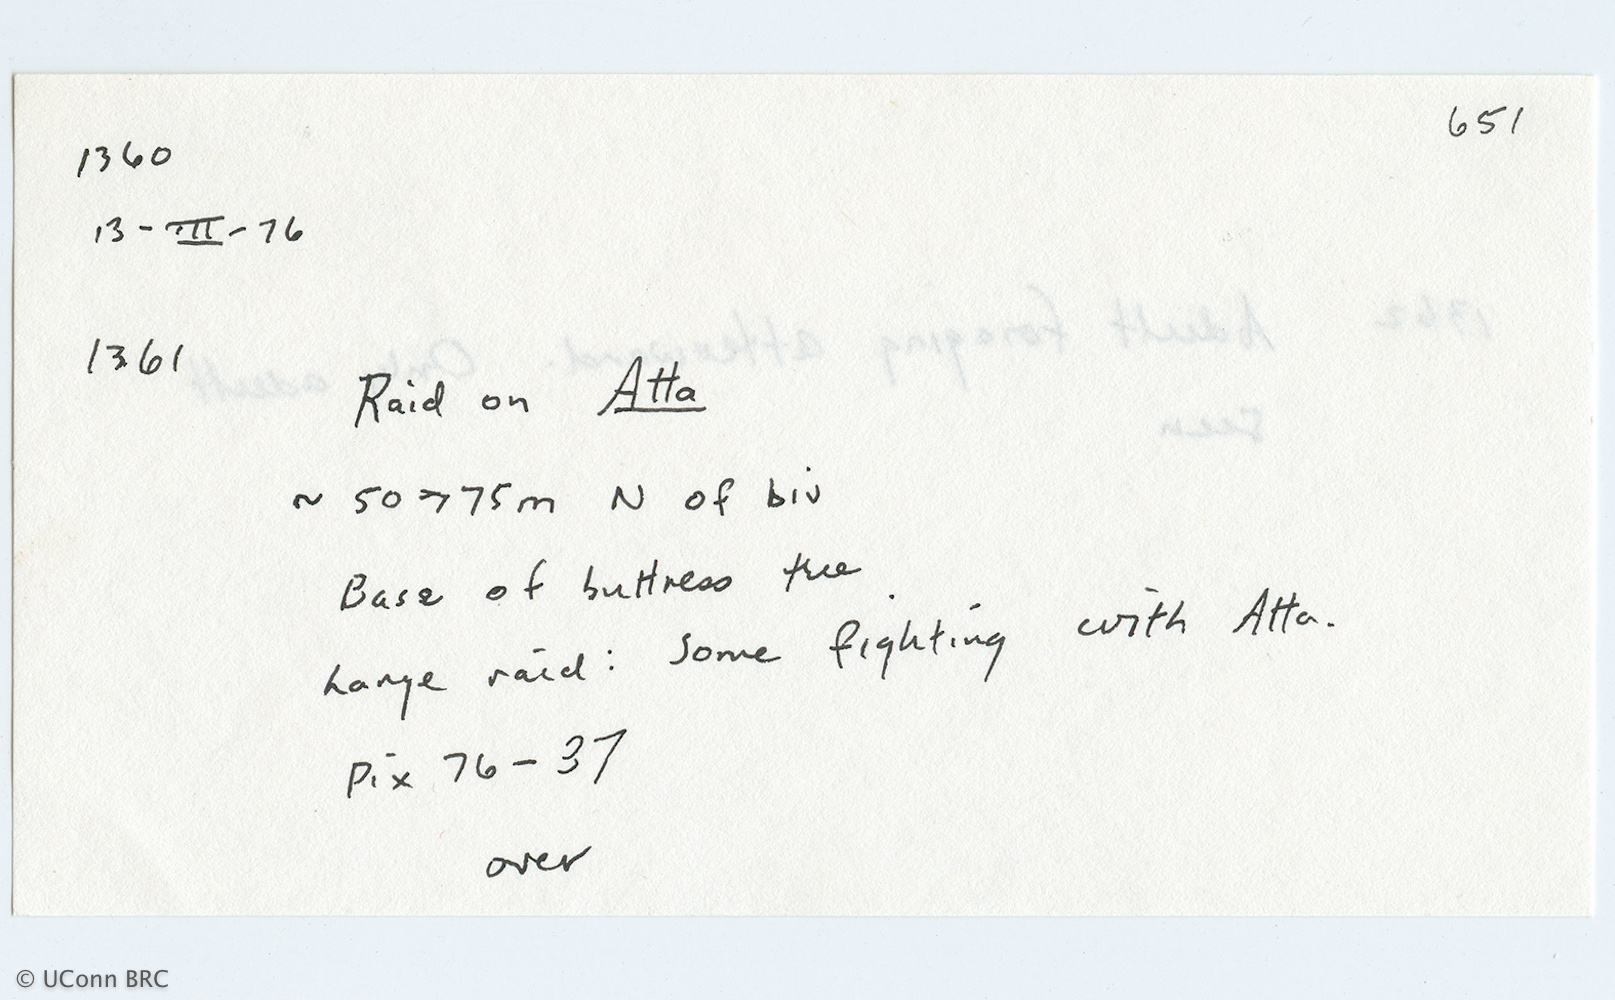 651
1360
13-III-76
1361
Raid on Atta
~ 50→75m N of biv
Base of buttress tree
Large raid: Some fighting with Atta.
Pix 76-37
over
1362 Adult foraging afterward. Only adult
seen
© UConn BRC